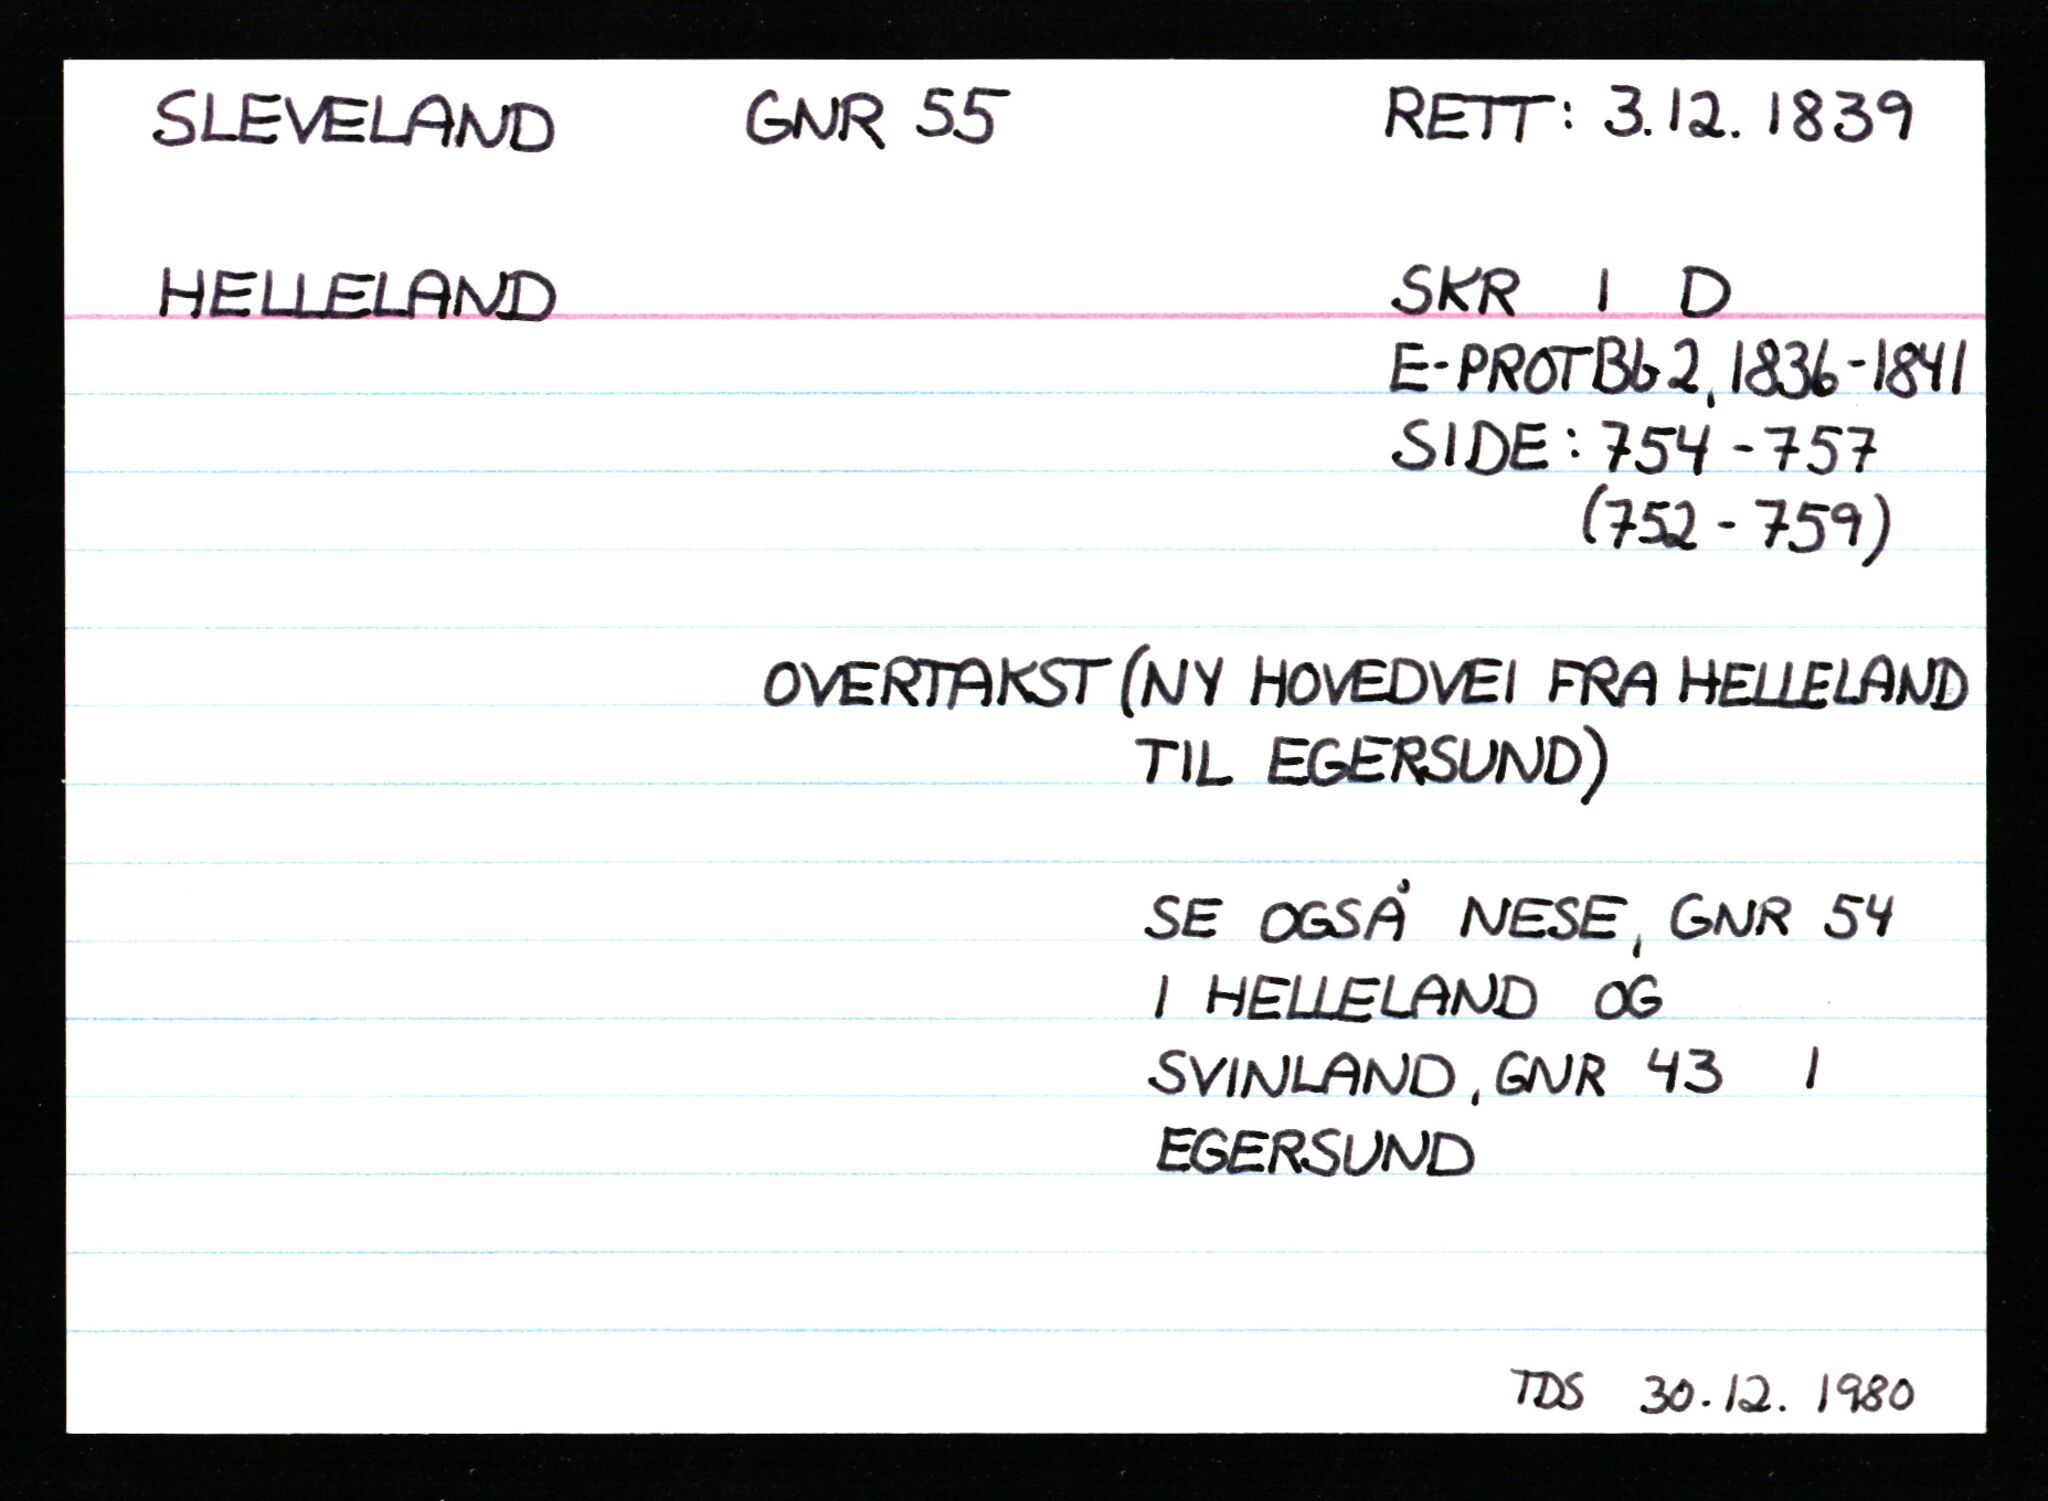 SLEVELAND GNR 55 RETT: 3.12.1839
HELLELAND SKR I D
E-PROTBb2, 1836-1841
SIDE: 754-757
(752-759)
OVERTAKST (NY HOVEDVEI FRA HELLELAND
TIL EGERSUND)
SE OGSÅ NESE, GNR 54
I HELLELAND OG
SVINLAND, GNR 43 I
EGERSUND
TDS 30.12.1980